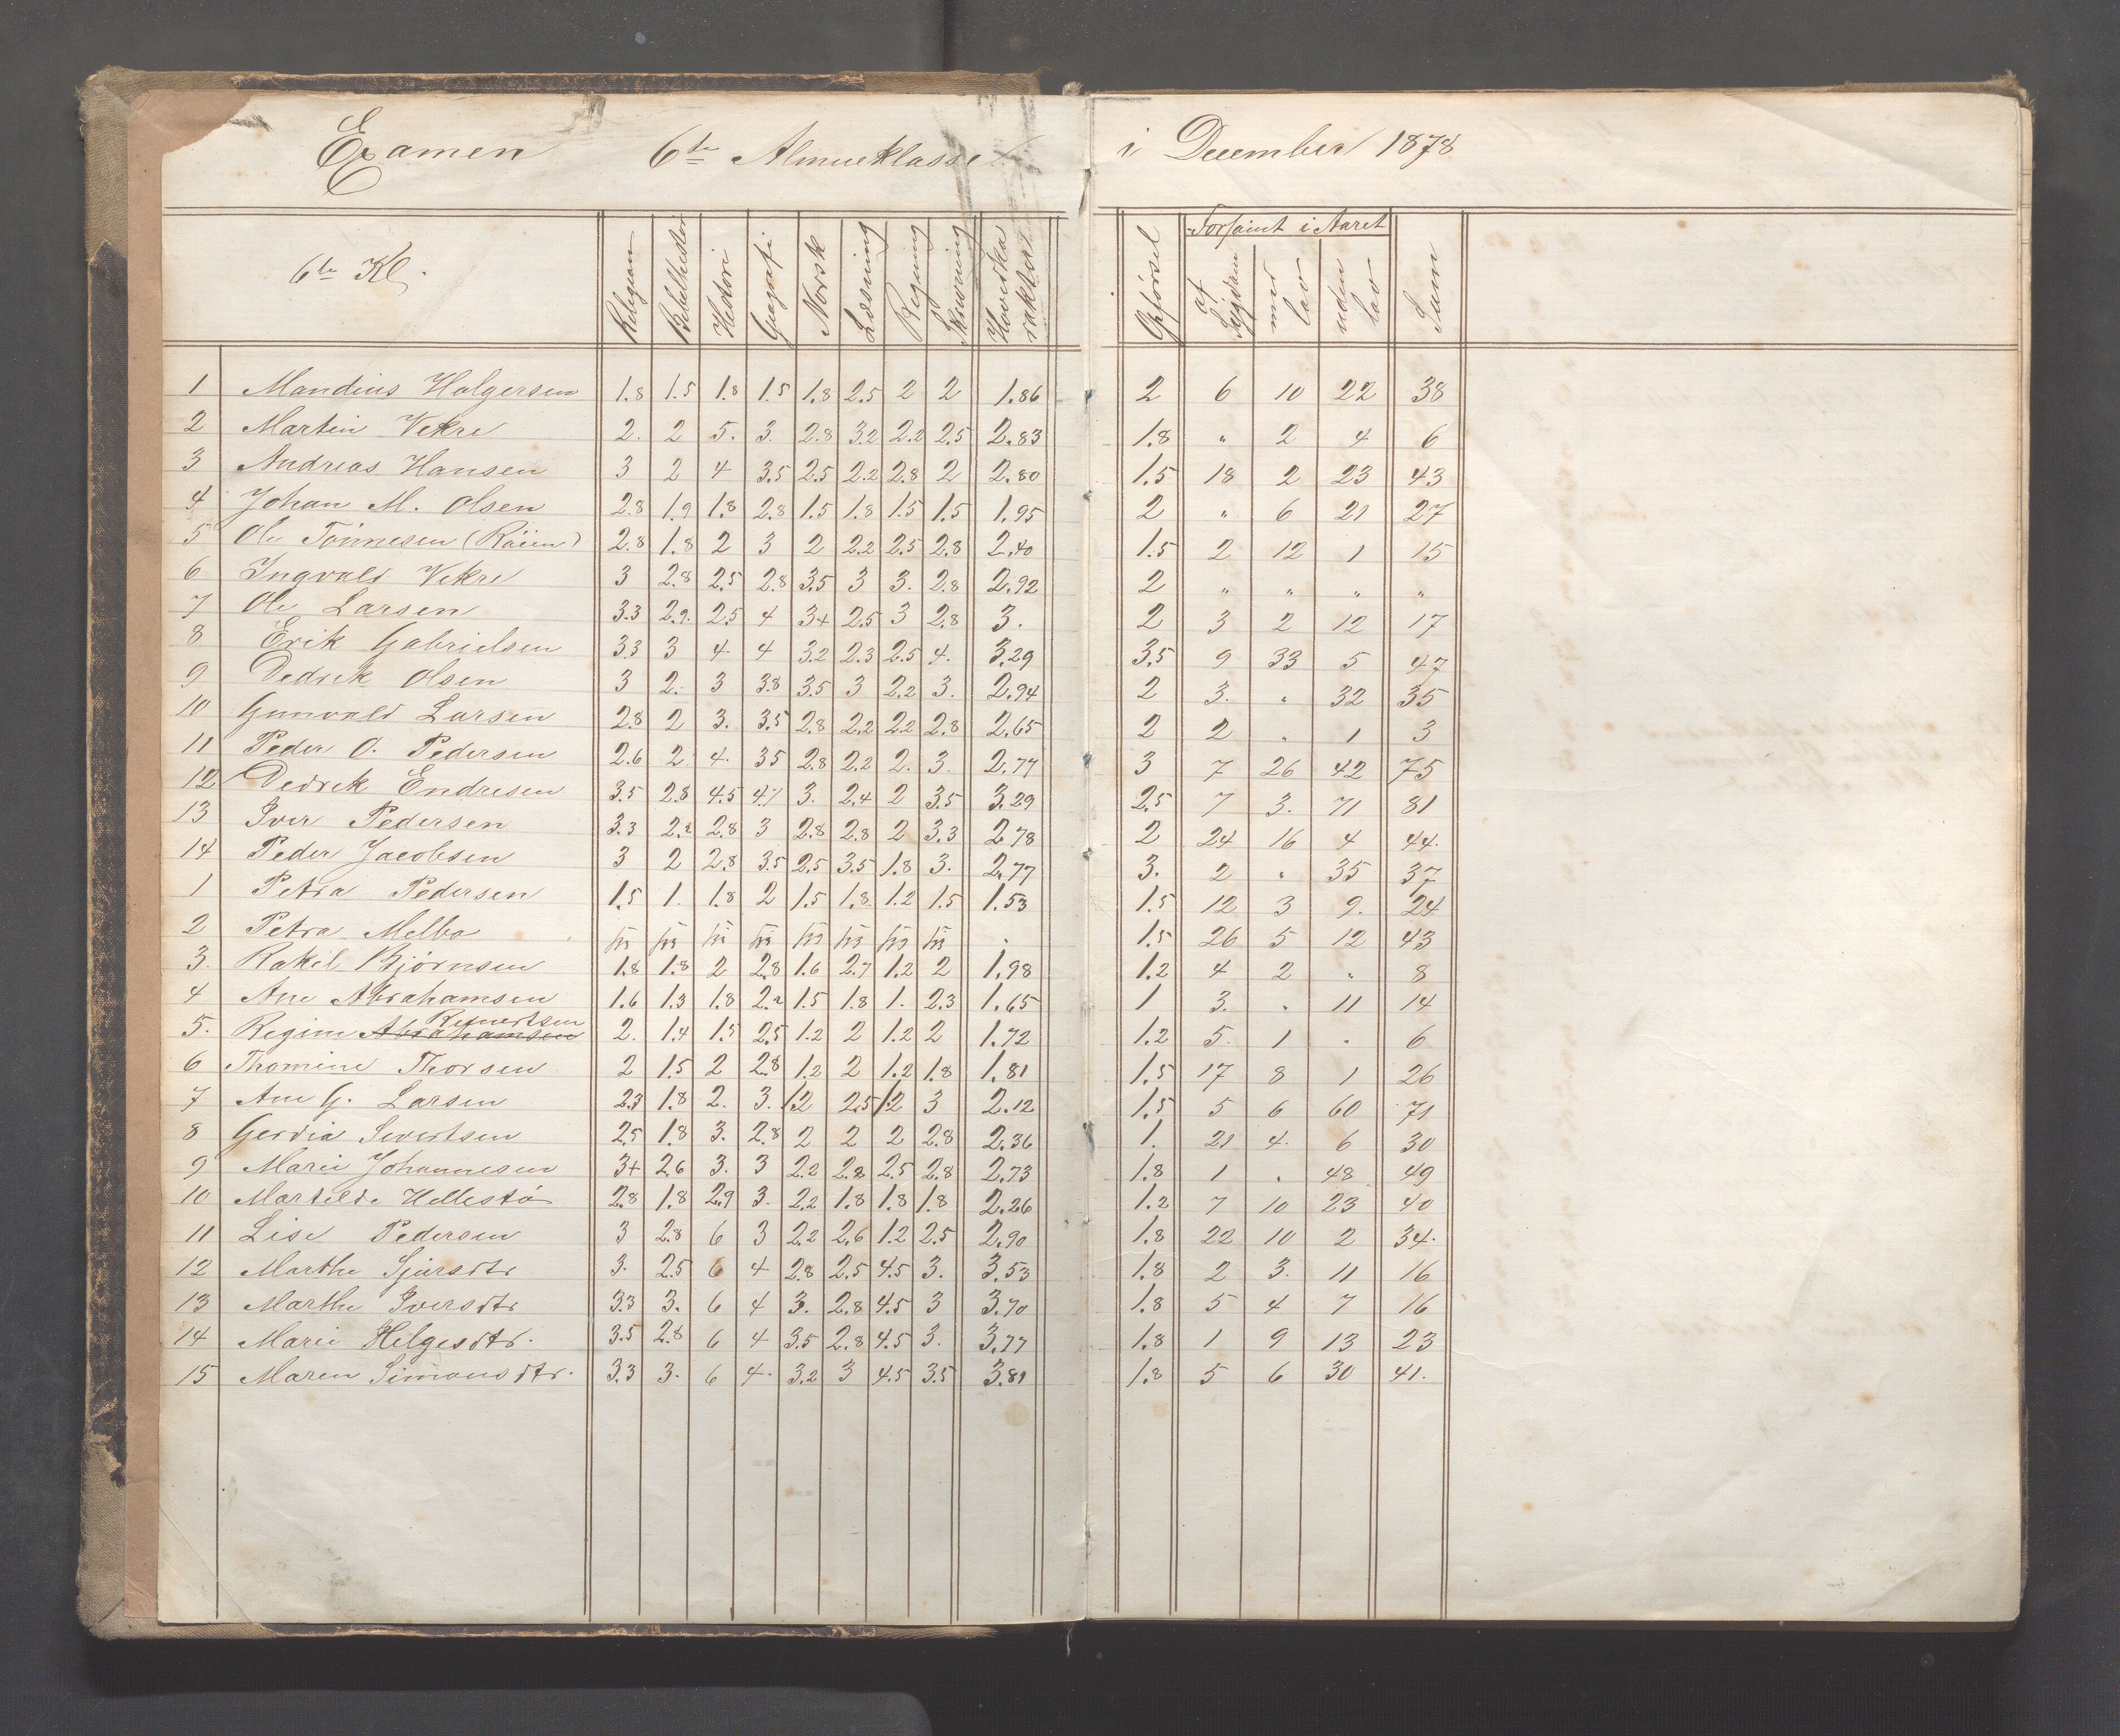 Examen 6te Almueklasse i December 1878
6te Kl. Religion Bibelhistor Historie Geografi Norsk Læsning Regning Skrivning Hovedkarakter Opførsel Forsømt i Aaret af Sygdom med lov uden lov Sum
1 Mandius Holgersen 1.8 1.5 1.8 1.5 1.8 2.5 2 2 1.86 2 6 10 22 38
2 Martin Vekre 2. 2 5. 3. 2.8 3.2 2.2 2.5 2.83 1.8 " 2 4 6
3 Andreas Hansen 3 2 4 3.5 2.5 2.2 2.8 2 2.80 1.5 18 2 23 43
4 Johan M. Olsen 2.8 1.9 1.8 2.8 1.5 1.8 1.5 1.5 1.95 2 " 6 21 27
5 Ole Tønnesen (Røien) 2.8 1.8 2 3 2 2.2 2.5 2.8 2.40 1.5 2 12 1 15
6 Ingvald Vekre 3 2.8 2.5 2.8 3.5 3 3. 2.8 2.92 2 " " " "
7 Ole Larsen 3.3 2.9. 2.5 4 3+ 2.5 3 2.8 3. 2 3 2 12 17
8 Erik Gabrielsen 3.3 3 4. 4 3.2 2.3 2.5 4. 3.29 3.5 9 33 5 47
9 Dedrik Olsen 3 2. 3 3.8 3.5 3 2.2 3. 2.94 2 3. " 32 35
10 Gunvald Larsen 2.8 2 3. 3.5 2.8 2.2 2.2 2.8 2.65 2 2 " 1 3
11 Peder O. Pedersen 2.6 2 4. 3.5 2.8 2.2 2. 3. 2.77 3 7 26 42 75
12 Dedrik Endresen 3.5 2.8 4.5 4.7 3. 2.4 2 3.5 3.29 2.5 7 3. 71 81
13 Iver Pedersen 3.3 2.2 2.8 3 2.8 2.8 2 3.3 2.78 2 24 16 4 44.
14 Peder Jacobsen 3 2 2.8 3.5 2.5 3.5 1.8 3. 2.77 3. 2 " 35 37
1 Petra Pedersen 1.5 1. 1.8 2 1.5 1.8 1.2 1.5 1.53 1.5 12 3 9. 24
2 Petra Melbo 1.5 26 5 12 43
3. Rakel Bjørnsen 1.8 1.8 2 2.8 1.6 2.7 1.2 2 1.98 1.2 4 2 " 8
4 Ane Abrahamsen 1.6 1.3 1.8 2.2 1.5 1.8 1. 2.3 1.65 1 3. " 11 14
5. Regine Abrahamsen Reinertsen 2. 1.4 1.5 2.5 1.2 2 1.2 2 1.72 1.2 5. 1 " 6
6 Thomine Thorsen 2 1.5 2 2.8 1.2 2 1.2 1.8 1.81 1.5 17 8 1 26
7 Ane G. Larsen 2.3 1.8 2. 3. 1.2 2.5 1.2 3 2.12 1.5 5 6 60 71
8 Gerdia Sivertsen 2.5 1.8 3. 2.8 2 2 2 2.8 2.36 1. 21 4. 6 30
9 Marie Johannesen 3+ 2.6 3. 3 2.2 2.8 2.5 2.8 2.73 1.8 1 " 48 49
10 Martilde Hellestø 2.8 1.8 2.9 3. 2.2 1.8 1.8 1.8 2.26 1.2 7 10 23 40
11 Lise Pedersen 3 2.8 6 3 2.2 2.6 1.2 2.5 2.90 1.8 22 10 2 34.
12 Marthe Sjursdtr 3. 2.5 6 4 2.8 2.5 4.5 3. 3.53 1.8 2 3. 11 16
13 Marthe Iversdtr 3.3 3. 6 4 3. 2.8 4.5 3 3.70 1.8 5 4 7 16
14 Marie Helgesdtr. 3.5 2.8 6 4 3.5 2.8 4.5 3. 3.77 1.8 1 9 13 23
15 Maren Simonsdtr. 3.3 3. 6 4. 3.2 3 4.5 3.5 3.81 1.8 5 6 30 41.